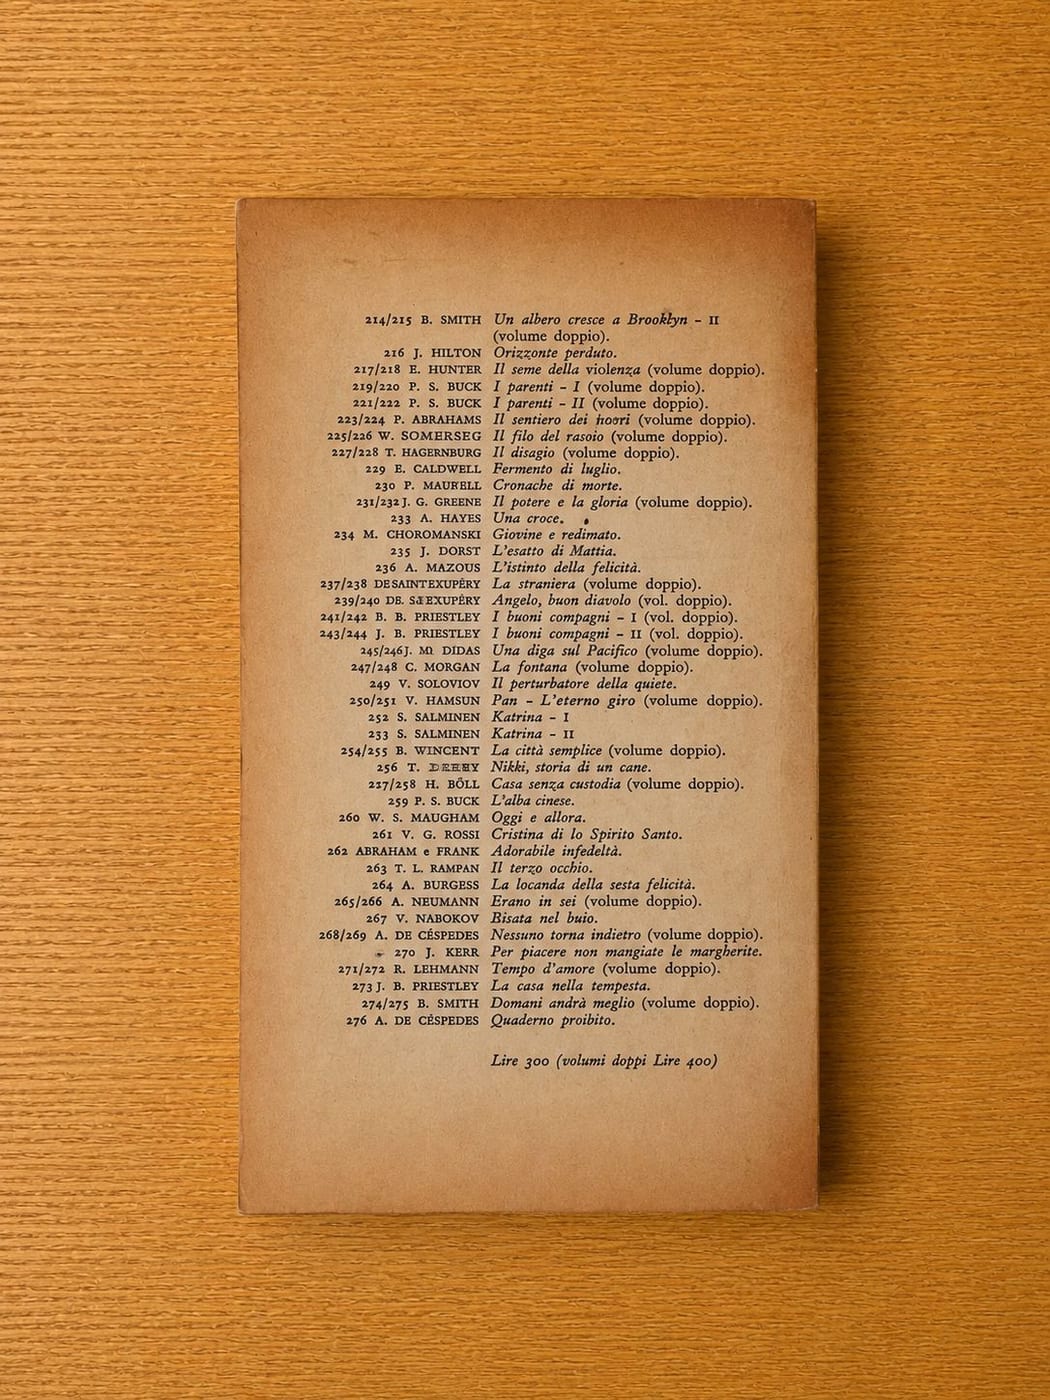 214/215 B. SMITH Un albero cresce a Brooklyn – II
(volume doppio).
216 J. HILTON Orizzonte perduto.
217/218 E. HUNTER Il seme della violenza (volume doppio).
219/220 P. S. BUCK I parenti – I (volume doppio).
221/222 P. S. BUCK I parenti – II (volume doppio).
223/224 P. ABRAHAMS Il sentiero dei (volume doppio).
225/226 W. SOMERSEG Il filo del rasoio (volume doppio).
227/228 T. HAGERNBURG Il disagio (volume doppio).
229 E. CALDWELL Fermento di luglio.
230 P. Cronache di morte.
231/232 J. G. GREENE Il potere e la gloria (volume doppio).
233 A. HAYES Una croce.
234 M. CHOROMANSKI Giovine e redimato.
235 J. DORST L'esatto di Mattia.
236 A. MAZOUS L'istinto della felicità.
237/238 DE SAINT EXUPÉRY La straniera (volume doppio).
239/240 DE. Angelo, buon diavolo (vol. doppio).
241/242 B. B. PRIESTLEY I buoni compagni – I (vol. doppio).
243/244 J. B. PRIESTLEY I buoni compagni – II (vol. doppio).
245/246 J. DIDAS Una diga sul Pacifico (volume doppio).
247/248 C. MORGAN La fontana (volume doppio).
249 V. SOLOVIOV Il perturbatore della quiete.
250/251 V. HAMSUN Pan – L'eterno giro (volume doppio).
252 S. SALMINEN Katrina – I
233 S. SALMINEN Katrina – II
254/255 B. WINCENT La città semplice (volume doppio).
256 T. Nikki, storia di un cane.
227/258 H. BÖLL Casa senza custodia (volume doppio).
259 P. S. BUCK L'alba cinese.
260 W. S. MAUGHAM Oggi e allora.
261 V. G. ROSSI Cristina di lo Spirito Santo.
262 ABRAHAM e FRANK Adorabile infedeltà.
263 T. L. RAMPAN Il terzo occhio.
264 A. BURGESS La locanda della sesta felicità.
265/266 A. NEUMANN Erano in sei (volume doppio).
267 V. NABOKOV Bisata nel buio.
268/269 A. DE CÉSPEDES Nessuno torna indietro (volume doppio).
270 J. KERR Per piacere non mangiate le margherite.
271/272 R. LEHMANN Tempo d'amore (volume doppio).
273 J. B. PRIESTLEY La casa nella tempesta.
274/275 B. SMITH Domani andrà meglio (volume doppio).
276 A. DE CÉSPEDES Quaderno proibito.
Lire 300 (volumi doppi Lire 400)